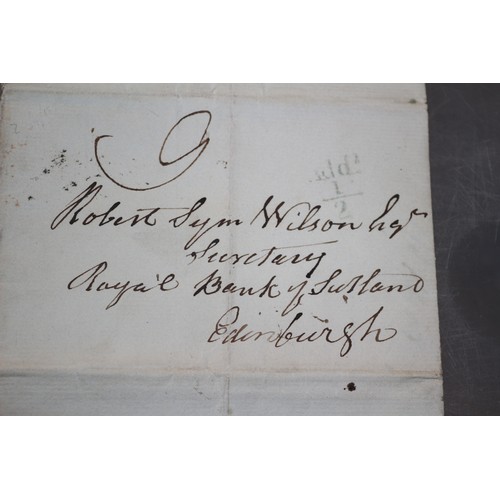 9
Addl
1
2
Robert Sym Wilson Esqr
Secretary
Royal Bank of Scotland
Edinburgh